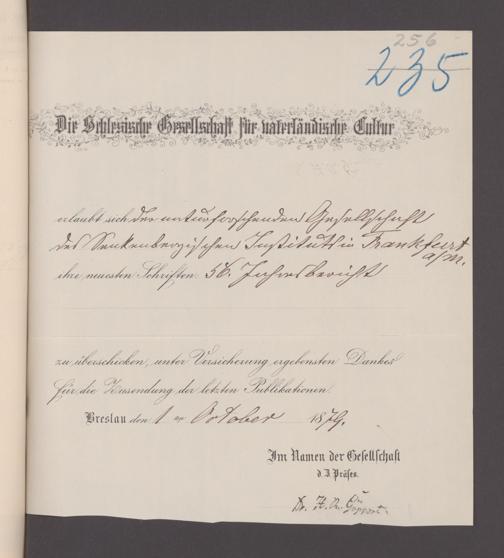 256
235
Die Schlesische Gesellschaft für vaterländische Cultur
erlaubt sich der naturforschenden Gesellschaft
des Senkenbergischen Instituts in Frankfurt
a/M.
ihre neuesten Schriften 56. Jahresbericht
zu überschicken, unter Versicherung ergebensten Dankes
für die Zusendung der letzten Publikationen.
Breslau den 1 October 1879.
Im Namen der Gesellschaft
d. Z. Präses.
Dr. H. R. Göppert.